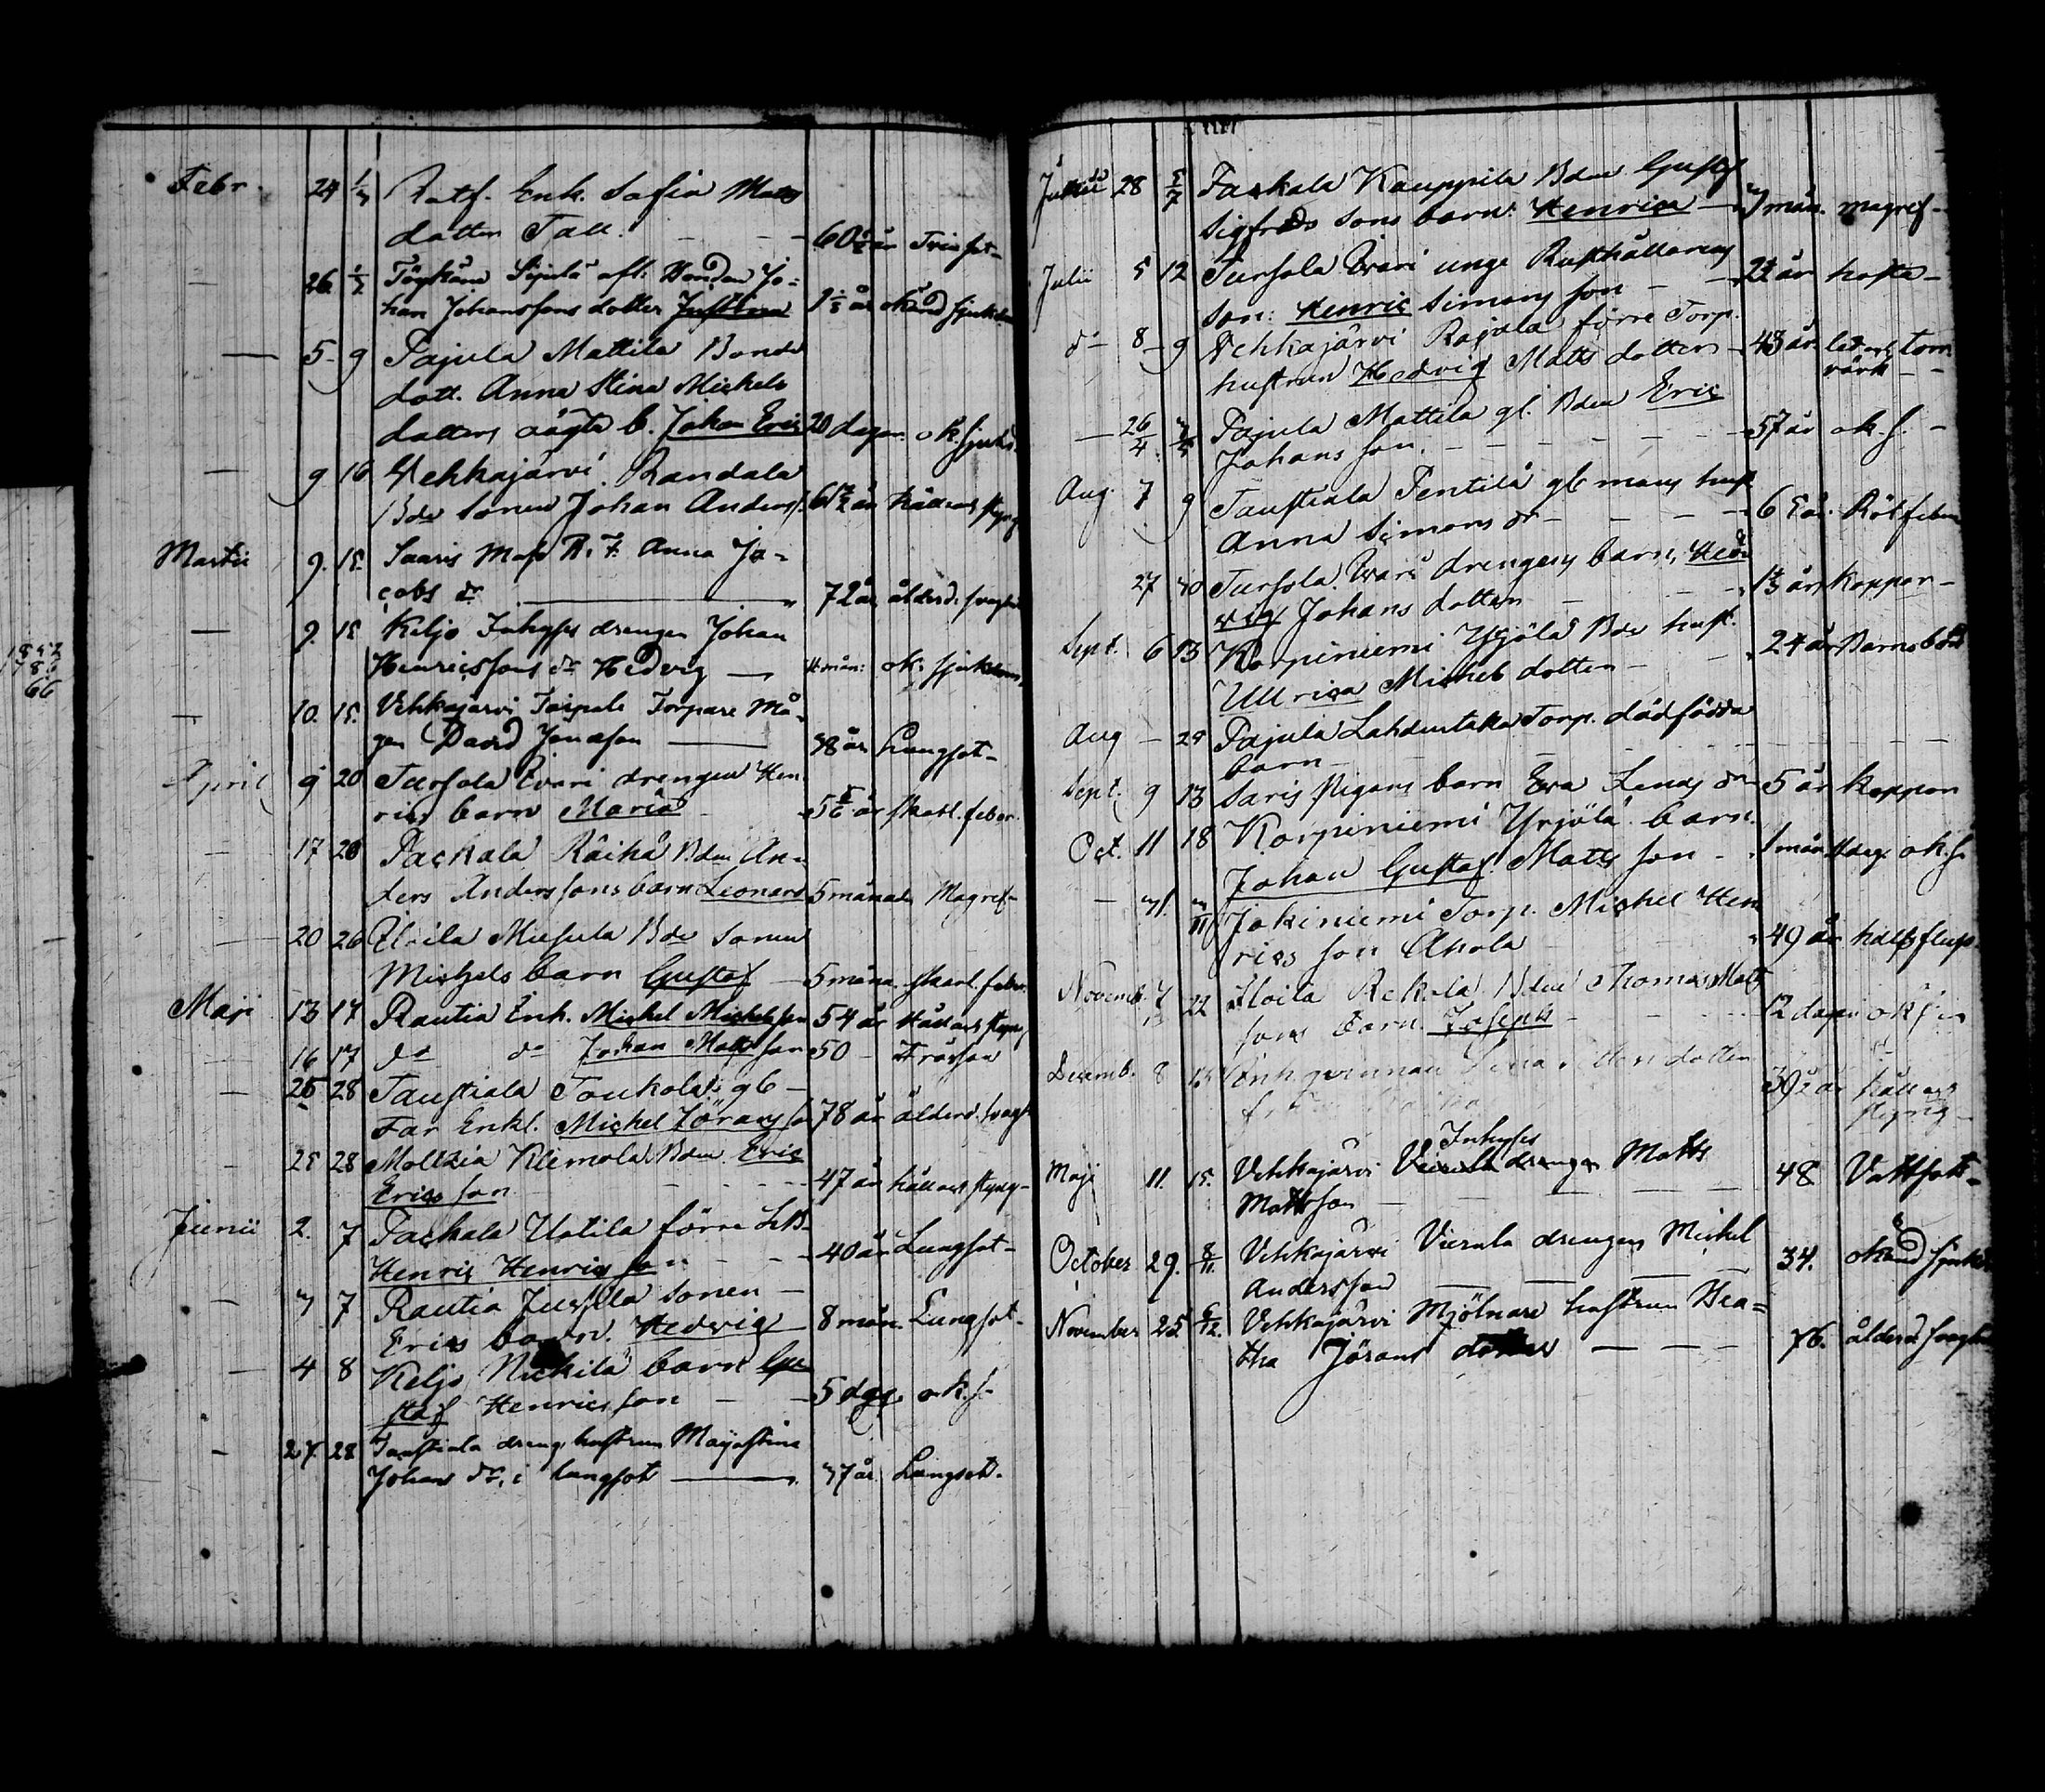 Febr. 24 1/3 Rotf. Enk. Sofia Matts
dotter Tall. 60 1/2 år Trinsot
26. 1/2 Töyhäne Sipilä afl. Bonden Jo=
han Johanssons dotter Justina 1 1/2 år okänd sjukdom
5 9 Pajula Mattila Bonde
dott. Anna Stina Michels
dotters oägta b. Johan Eric 20 dagar ok. sjukd.
9 16 Vehkajärvi Randala
Bde sonen Johan Anderss. 61 år håll och styng
Martii 9. 15. Saaris Mass R. F. Anna Ja=
cobs dr 72 år ålderd. svaghet
9. 15 Keljo Inhyses drengen Johan
Henricssons dr Hedvig 4 mån: ok: sjukdom
10. 15. Vehkajärvi Torpare Må=
gen David Jonasson 38 år Lungsot
April 9 20 Tursola Evari drengen Hen
rics barn Maria 5 5/6 år skarl. feber
17 20 Packala Räihä Bden An=
ders Anderssons barn Leonard 5 månader Magref
20 26 Uoila Bde sonen
Michels barn Gustaf 5 måna. skarl. feber
Maji 13 17 Rautia Enk. Michel Michelsson 54 år Håll och styng
16 17 do do Johan Mattsson 50 Frossan
25 28 Taustiala Toukola gl
Far Enkl. Michel Jöransson 78 år ålderd. svagh.
25 28 Moltzia Klemola Bden Eric
Ericsson 47 år håll och styng
Junii 2. 7 Packala Uotila förre
Henric Henricsson 40 år Lungsot
3 7 Rautia Jussila sonen
Erics barn Hedvig 8 mån. Lungsot
4 8 Keljo Nickilä barn Gu
staf Henricsson 5 dgr ok. s.
27. 28 Taustiala dreng. hustrun Majastina
Johans dr. i lungsot 37 år Lungsot.
28 5/7 Packala Kauppila Bden Gustaf
Sigfreds sons barn: Henrica 3 mån. magref
Julii 5 12 Tursola Evari unge Rusthållarens
son: Henric Simons son 2 år hosta
do 8 9 Vehkajärvi Rajala förre Torp.
hustrun Hedvig Matts dotter 43 år torr
värk
26 Pajula Mattila gl. Bden Eric
Johans son 57 år ok. s.
Aug. 7 9 Taustiala Pentilä gl mans hust
Anna Simons dr 6 år. Rötfeber
27 30 Tursola Evari drengens barn, Hed
vig Johans dotter 1 år koppor
Sept. 6 13 Korpiniemi Yrjölä Bde hust.
Ulrica Michels dotter 24 år Barnsbörd
Aug 25 Pajula Lahdentaka Torp. dödfödda
barn
Sept. 9 13 Saris pigans barn Eva Lenas dr 5 år koppor
Oct. 11 18 Korpiniemi Yrjölä barn
Johan Gustaf Matts son 1 mån dag. ok. s.
31. 3/11 Jokiniemi Torp. Michel Hen
rics son Ahola 49 år halsfluss
Novemb. 7 22 Uoila Rekola Bden Thomas Matts
sons barn Joseph 12 dagar ok s
Decemb. 8 Enk qvinnan Lena dotter
39 1/2 år håll och
styng
Maji 11. 15. Vehkajärvi Inhyses drengen Matts
Mattsson 48 Vattsot
October 29. 8/11. Vehkajärvi Vierula drengen Michel
Andersson 34. okänd sjukd
November 25 6/12. Vehkajärvi Mjölnare hustrun Bea=
tha Jörans dotter 76. ålderd. svaghet
1852